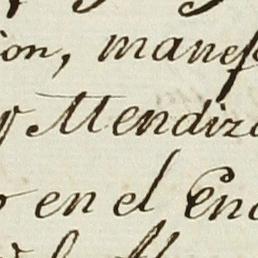 ion, manef
y Mendiza
en el Enc